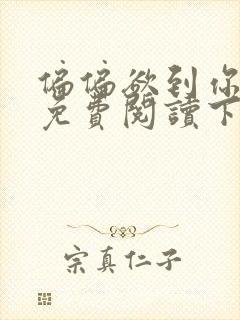 偏偏欲到你
免費閱讀下
宗真仁子